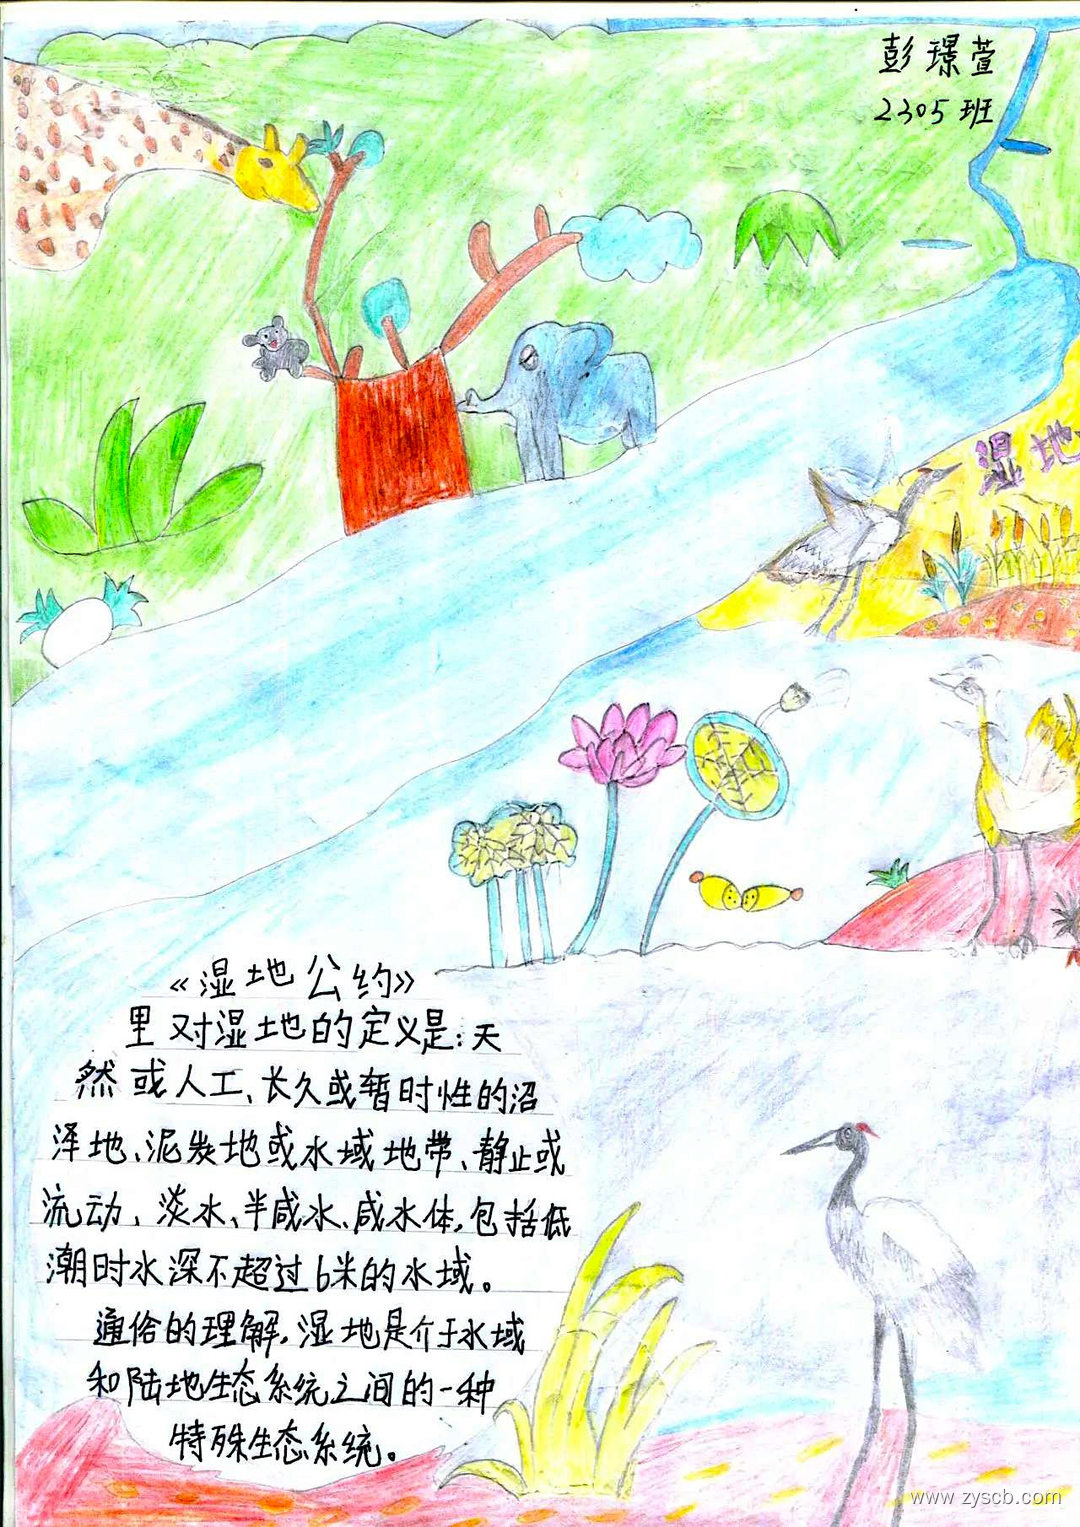 彭璟萱
2305班
湿地
《湿地公约》
里对湿地的定义是:天
然或人工、长久或暂时性的沼
泽地、泥炭地或水域地带、静止或
流动、淡水、半咸水、咸水体,包括低
潮时水深不超过6米的水域。
通俗的理解,湿地是介于水域
和陆地生态系统之间的一种
特殊生态系统。
www.zyscb.com